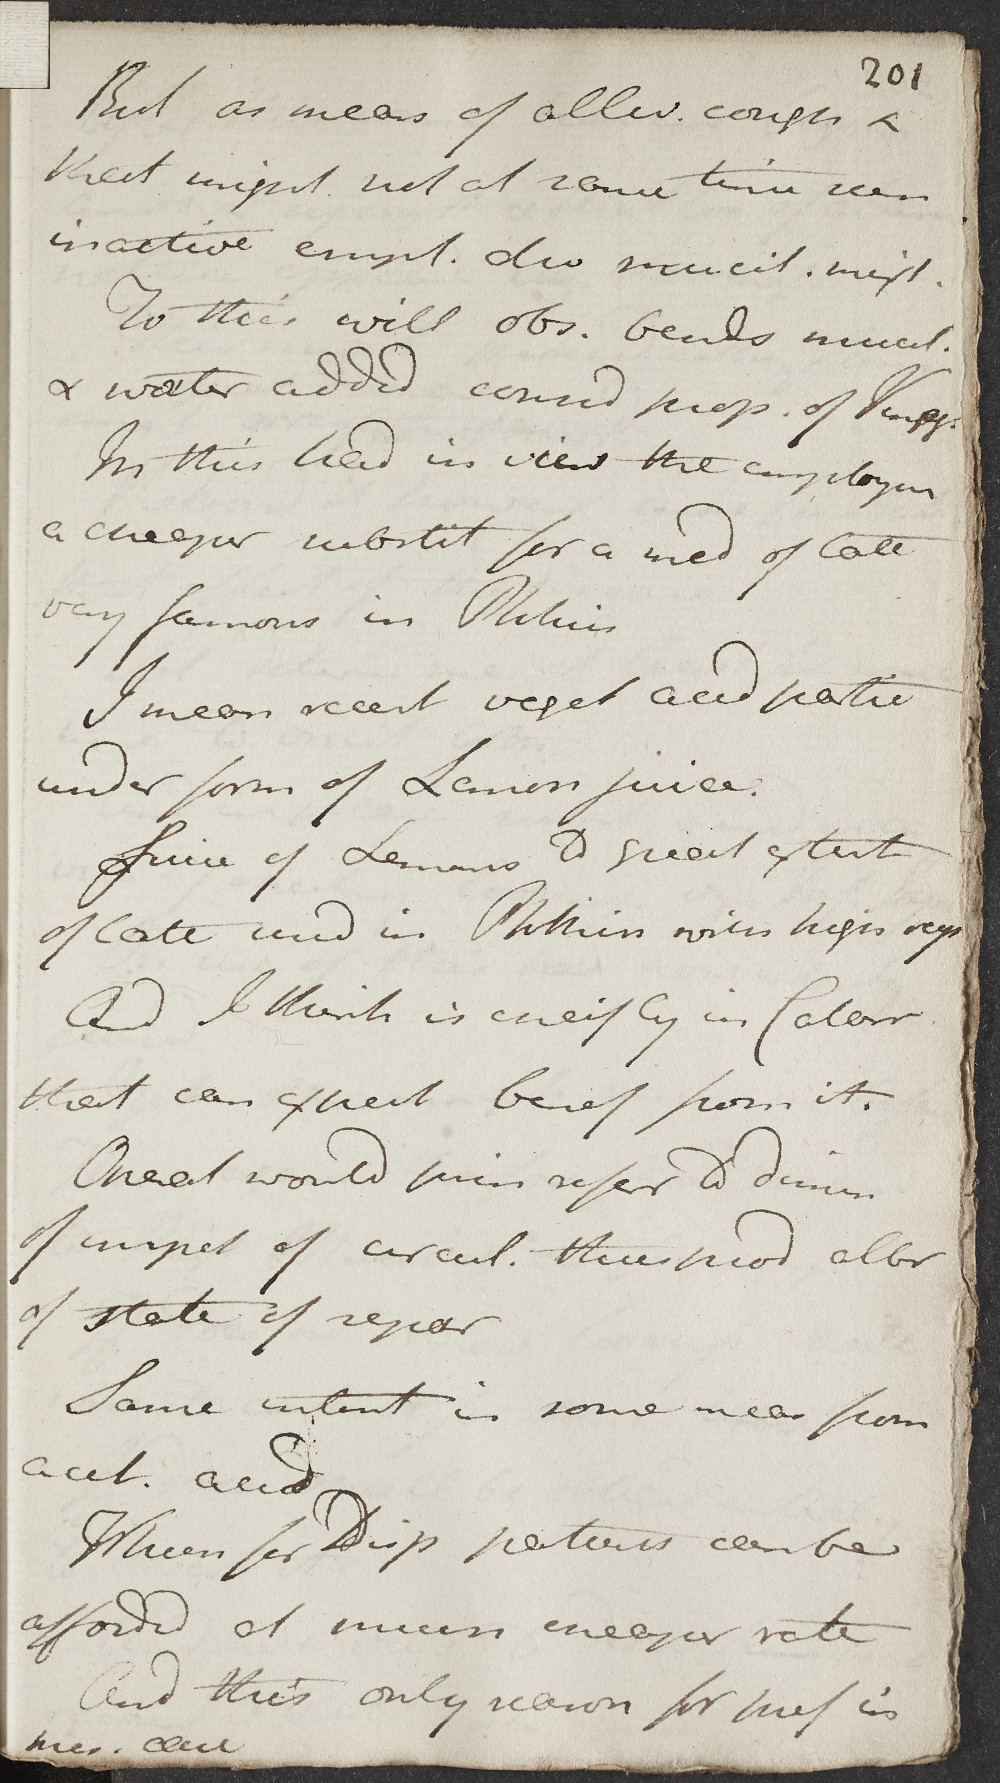 201
But as means of allev. cough &
that might not at same time seem
inactive empl. dec mucil. mixt.
To this will obs. besides mucil.
& water added consid prop. of Vinegr.
In this had in view the employm
a cheaper substit for a med of late
very famous in Phthisis
I mean recent veget acid partic
under form of Lemon juice.
Juice of Lemons to great extent
of late used in Phthisis with high
And I think is chiefly in
that can expect benef from it.
Operat would prin refer to dimin
of impet of circul. thus prod alter
of state of repar
Same intent in some meas from
acet. acid
When for Disp patients can be
afforded at much cheaper rate
And this only reason for pref in
pres. case